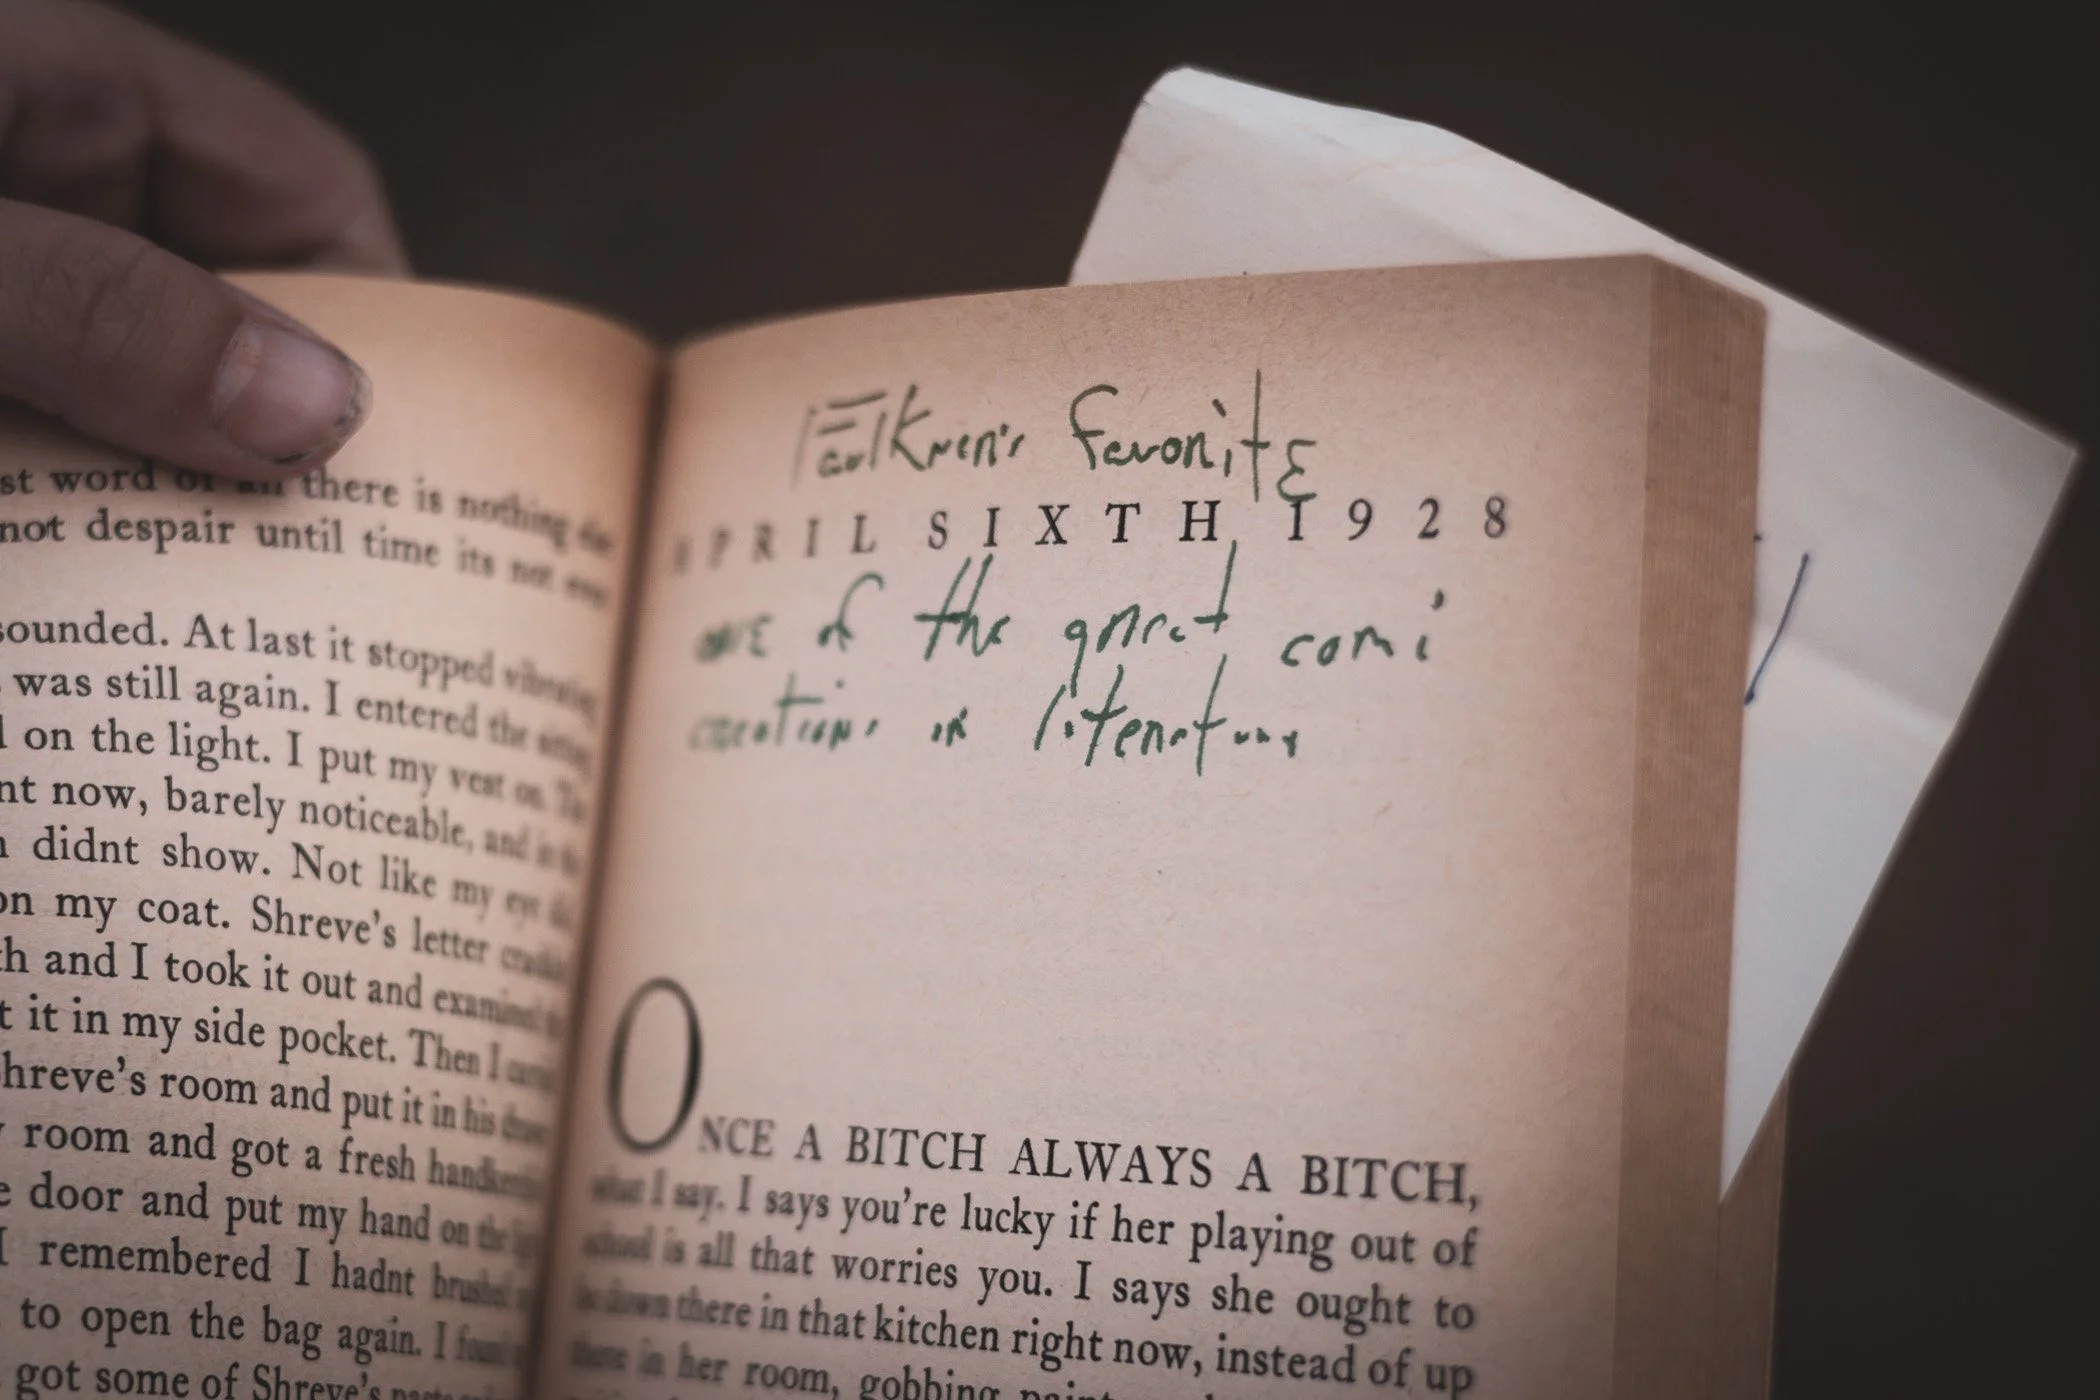 st word of all there is nothing else
not despair until time its not even
sounded. At last it stopped vibrating
was still again. I entered the sitting
on the light. I put my vest on. The
nt now, barely noticeable, and in the
didnt show. Not like my eye did
on my coat. Shreve's letter crackled
th and I took it out and examined the
t it in my side pocket. Then I carried
hreve's room and put it in his drawer
room and got a fresh handkerchief
e door and put my hand on the light
I remembered I hadnt brushed
to open the bag again. I found
got some of Shreve's paste
Faulkner's favorite
APRIL SIXTH 1928
one of the great comi
creations in literature
ONCE A BITCH ALWAYS A BITCH,
what I say. I says you're lucky if her playing out of
school is all that worries you. I says she ought to
be down there in that kitchen right now, instead of up
there in her room, gobbing paint